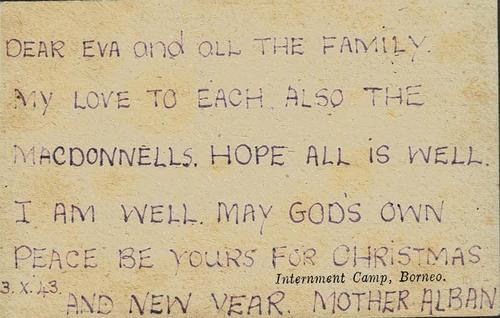 DEAR EVA and all THE FAMILY.
MY LOVE TO EACH. ALSO THE
MACDONNELLS. HOPE ALL IS WELL.
I AM WELL. MAY GOD'S OWN
PEACE BE YOURS FOR CHRISTMAS
Internment Camp, Borneo.
3.X.43.
AND NEW YEAR. MOTHER ALBAN